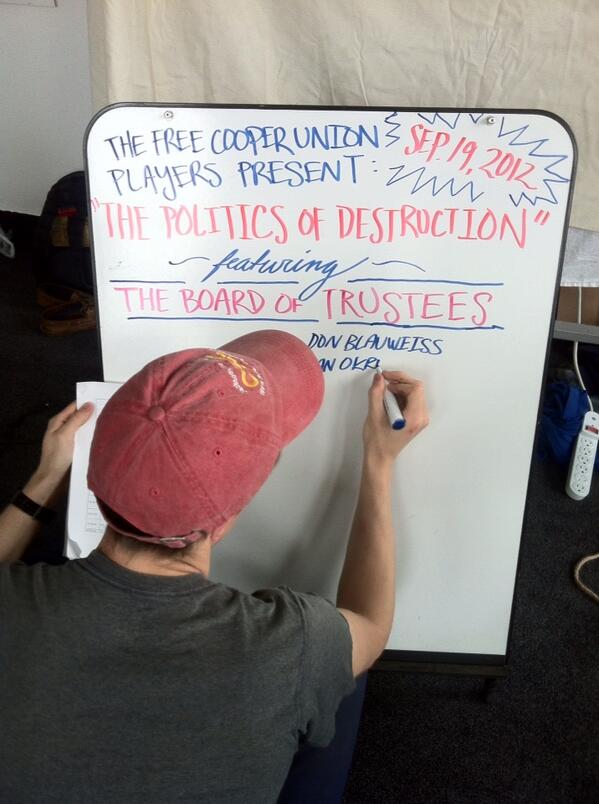 THE FREE COOPER UNION
PLAYERS PRESENT:
SEP. 19, 2012
"THE POLITICS OF DESTRUCTION"
~ featuring ~
THE BOARD OF TRUSTEES
DON BLAUWEISS